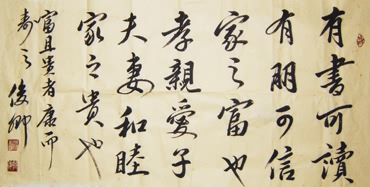 有書可讀
有朋可信
家之富也
孝親愛子
夫妻和睦
家之貴也
富且貴者康而
壽之 俊卿